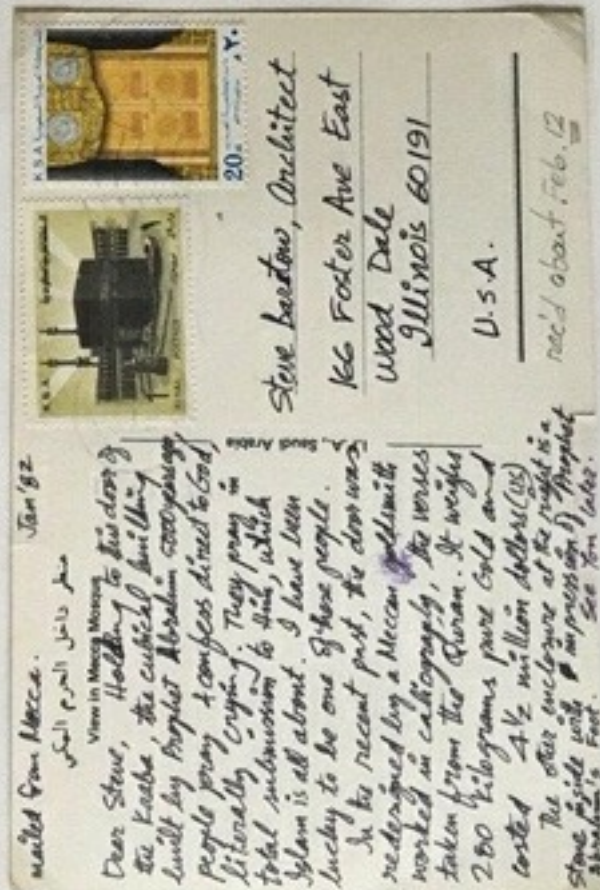 mailed from Mecca. Jan '82
منظر داخل الحرم المكي
View in Mecca Mosque
Dear Steve, Holding to this door of
the Kaaba, the cubical building
built by Prophet Abraham 5000 years ago,
people pray & confess direct to God,
literally crying. They pray in
total submission to Him, which
Islam is all about. I have been
lucky to be one of those people.
In the recent past, the door was
redesigned by a Meccan goldsmith
worked in caliography, the verses
taken from the Quran. It weighs
280 kilograms pure Gold and
costed 4½ million dollars (US)
The other enclosure at the right is a
stone inside with impression of Prophet
Abraham's Foot. See you later.
Saudi Arabia
K S A
20
٢٠
K S A
Steve barstow, Architect
166 Foster Ave East
Wood Dale
Illinois 60191
U.S.A.
rec'd about Feb. 12